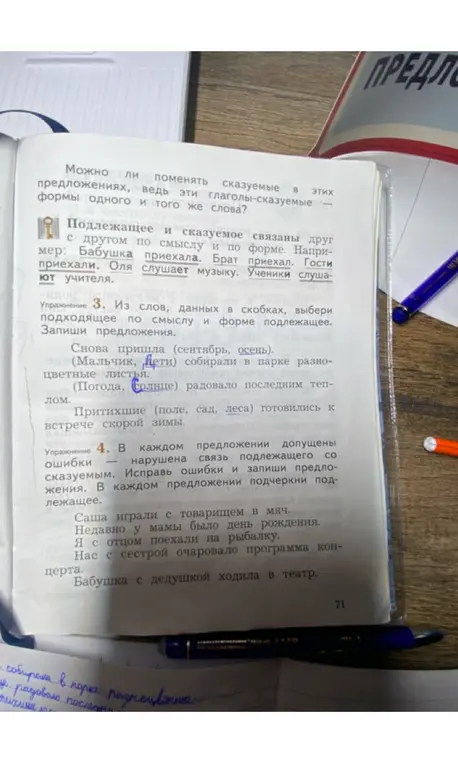 ПРЕДЛО
Можно ли поменять сказуемые в этих
предложениях, ведь эти глаголы-сказуемые —
формы одного и того же слова?
Подлежащее и сказуемое связаны друг
с другом по смыслу и по форме. Напри-
мер: Бабушка приехала. Брат приехал. Гости
приехали. Оля слушает музыку. Ученики слуша-
ют учителя.
Упражнение 3. Из слов, данных в скобках, выбери
подходящее по смыслу и форме подлежащее.
Запиши предложения.
Снова пришла (сентябрь, осень).
(Мальчик, Дети) собирали в парке разно-
цветные листья.
(Погода, Солнце) радовало последним теп-
лом.
Притихшие (поле, сад, леса) готовились к
встрече скорой зимы.
Упражнение 4. В каждом предложении допущены
ошибки — нарушена связь подлежащего со
сказуемым. Исправь ошибки и запиши предло-
жения. В каждом предложении подчеркни под-
лежащее.
Саша играли с товарищем в мяч.
Недавно у мамы было день рождения.
Я с отцом поехали на рыбалку.
Нас с сестрой очаровало программа кон-
церта.
Бабушка с дедушкой ходила в театр.
71
собирали в парке разноцветные
радовало последн